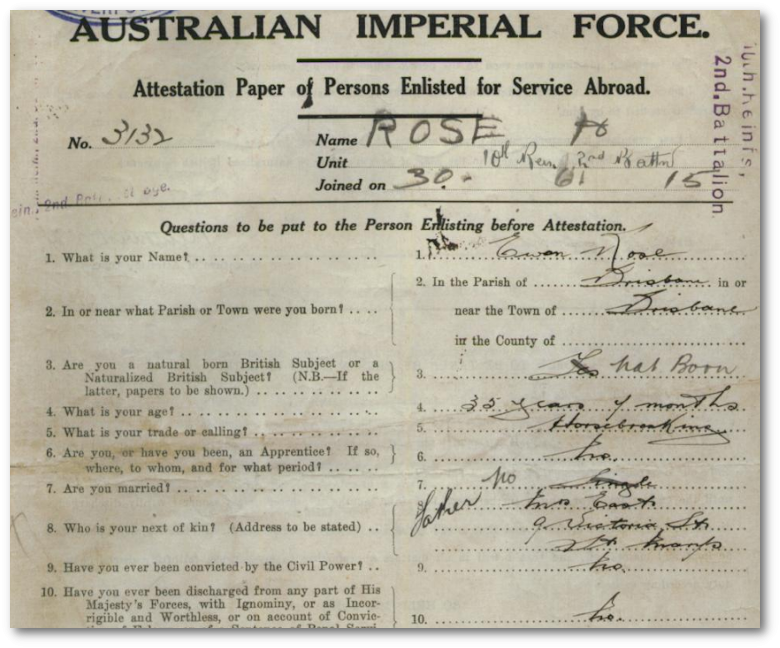 AUSTRALIAN IMPERIAL FORCE.
Attestation Paper of Persons Enlisted for Service Abroad.
No. 3132
Name ROSE
Unit 10th Rein / 2nd Battn
Joined on 30. 6 15
2nd. Battalion.
Questions to be put to the Person Enlisting before Attestation.
1. What is your Name? 1. Ewen Rose
2. In or near what Parish or Town were you born? 2. In the Parish of Brisbane in or
near the Town of Brisbane
in the County of
3. Are you a natural born British Subject or a
Naturalized British Subject? (N.B.—If the
latter, papers to be shown.) 3. Yes Nat Born
4. What is your age? 4. 35 years 4 months
5. What is your trade or calling? 5. Horsebreaking
6. Are you, or have you been, an Apprentice? If so,
where, to whom, and for what period? 6. No.
7. Are you married? 7. No Single
8. Who is your next of kin? (Address to be stated) 8. Father Mrs East
9 Victoria St
9. Have you ever been convicted by the Civil Power? 9. No.
10. Have you ever been discharged from any part of His
Majesty's Forces, with Ignominy, or as Incor-
rigible and Worthless, or on account of Convic-
10. No.